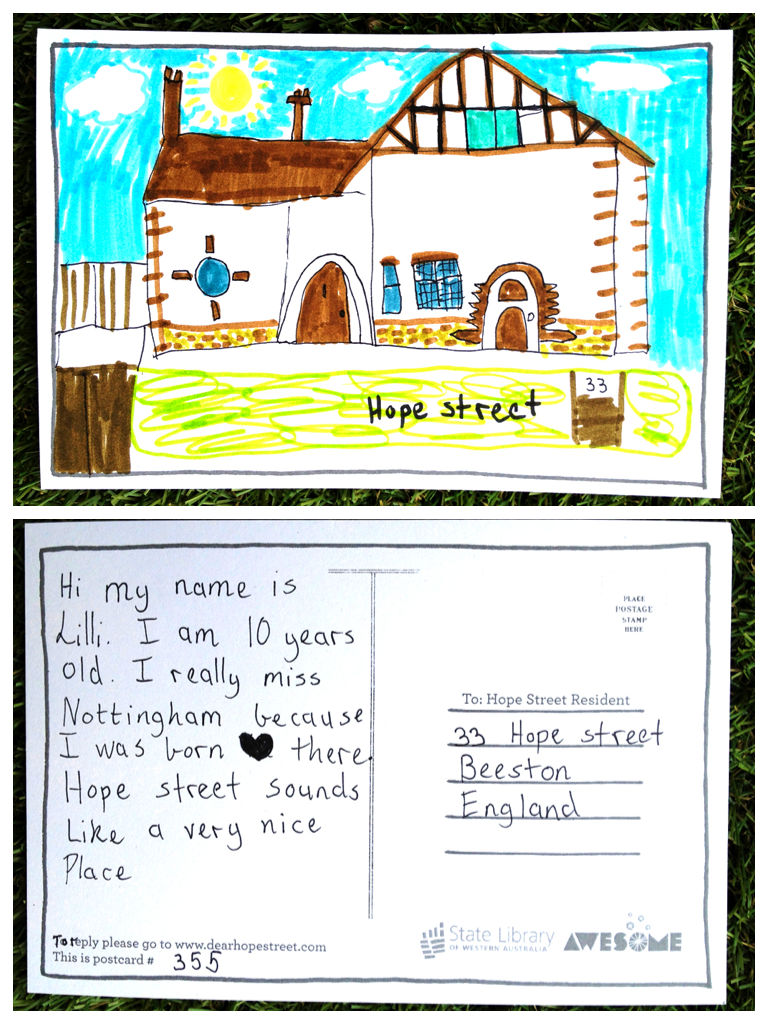 33
Hope street
Hi my name is
Lilli. I am 10 years
old. I really miss
Nottingham because
I was born there.
Hope street sounds
Like a very nice
Place
To reply please go to www.dearhopestreet.com
This is postcard # 355
PLACE
POSTAGE
STAMP
HERE
To: Hope Street Resident
33 Hope street
Beeston
England
State Library
OF WESTERN AUSTRALIA
AWESOME